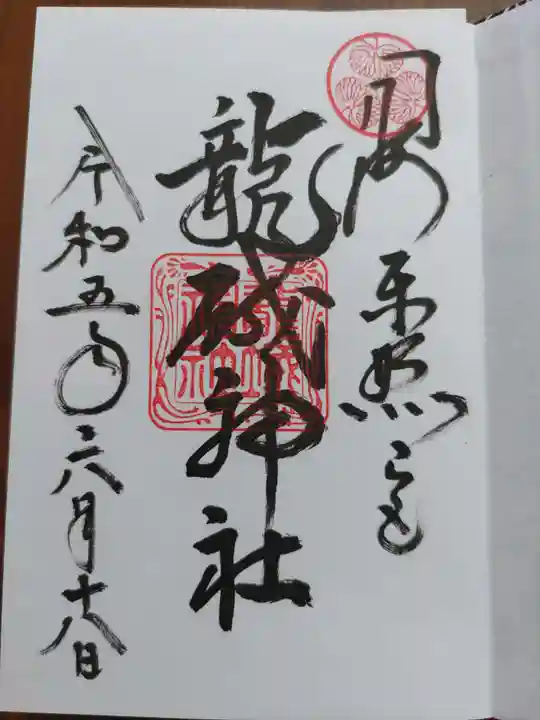 岡崎東照宮
龍城神社
令和五年六月十八日